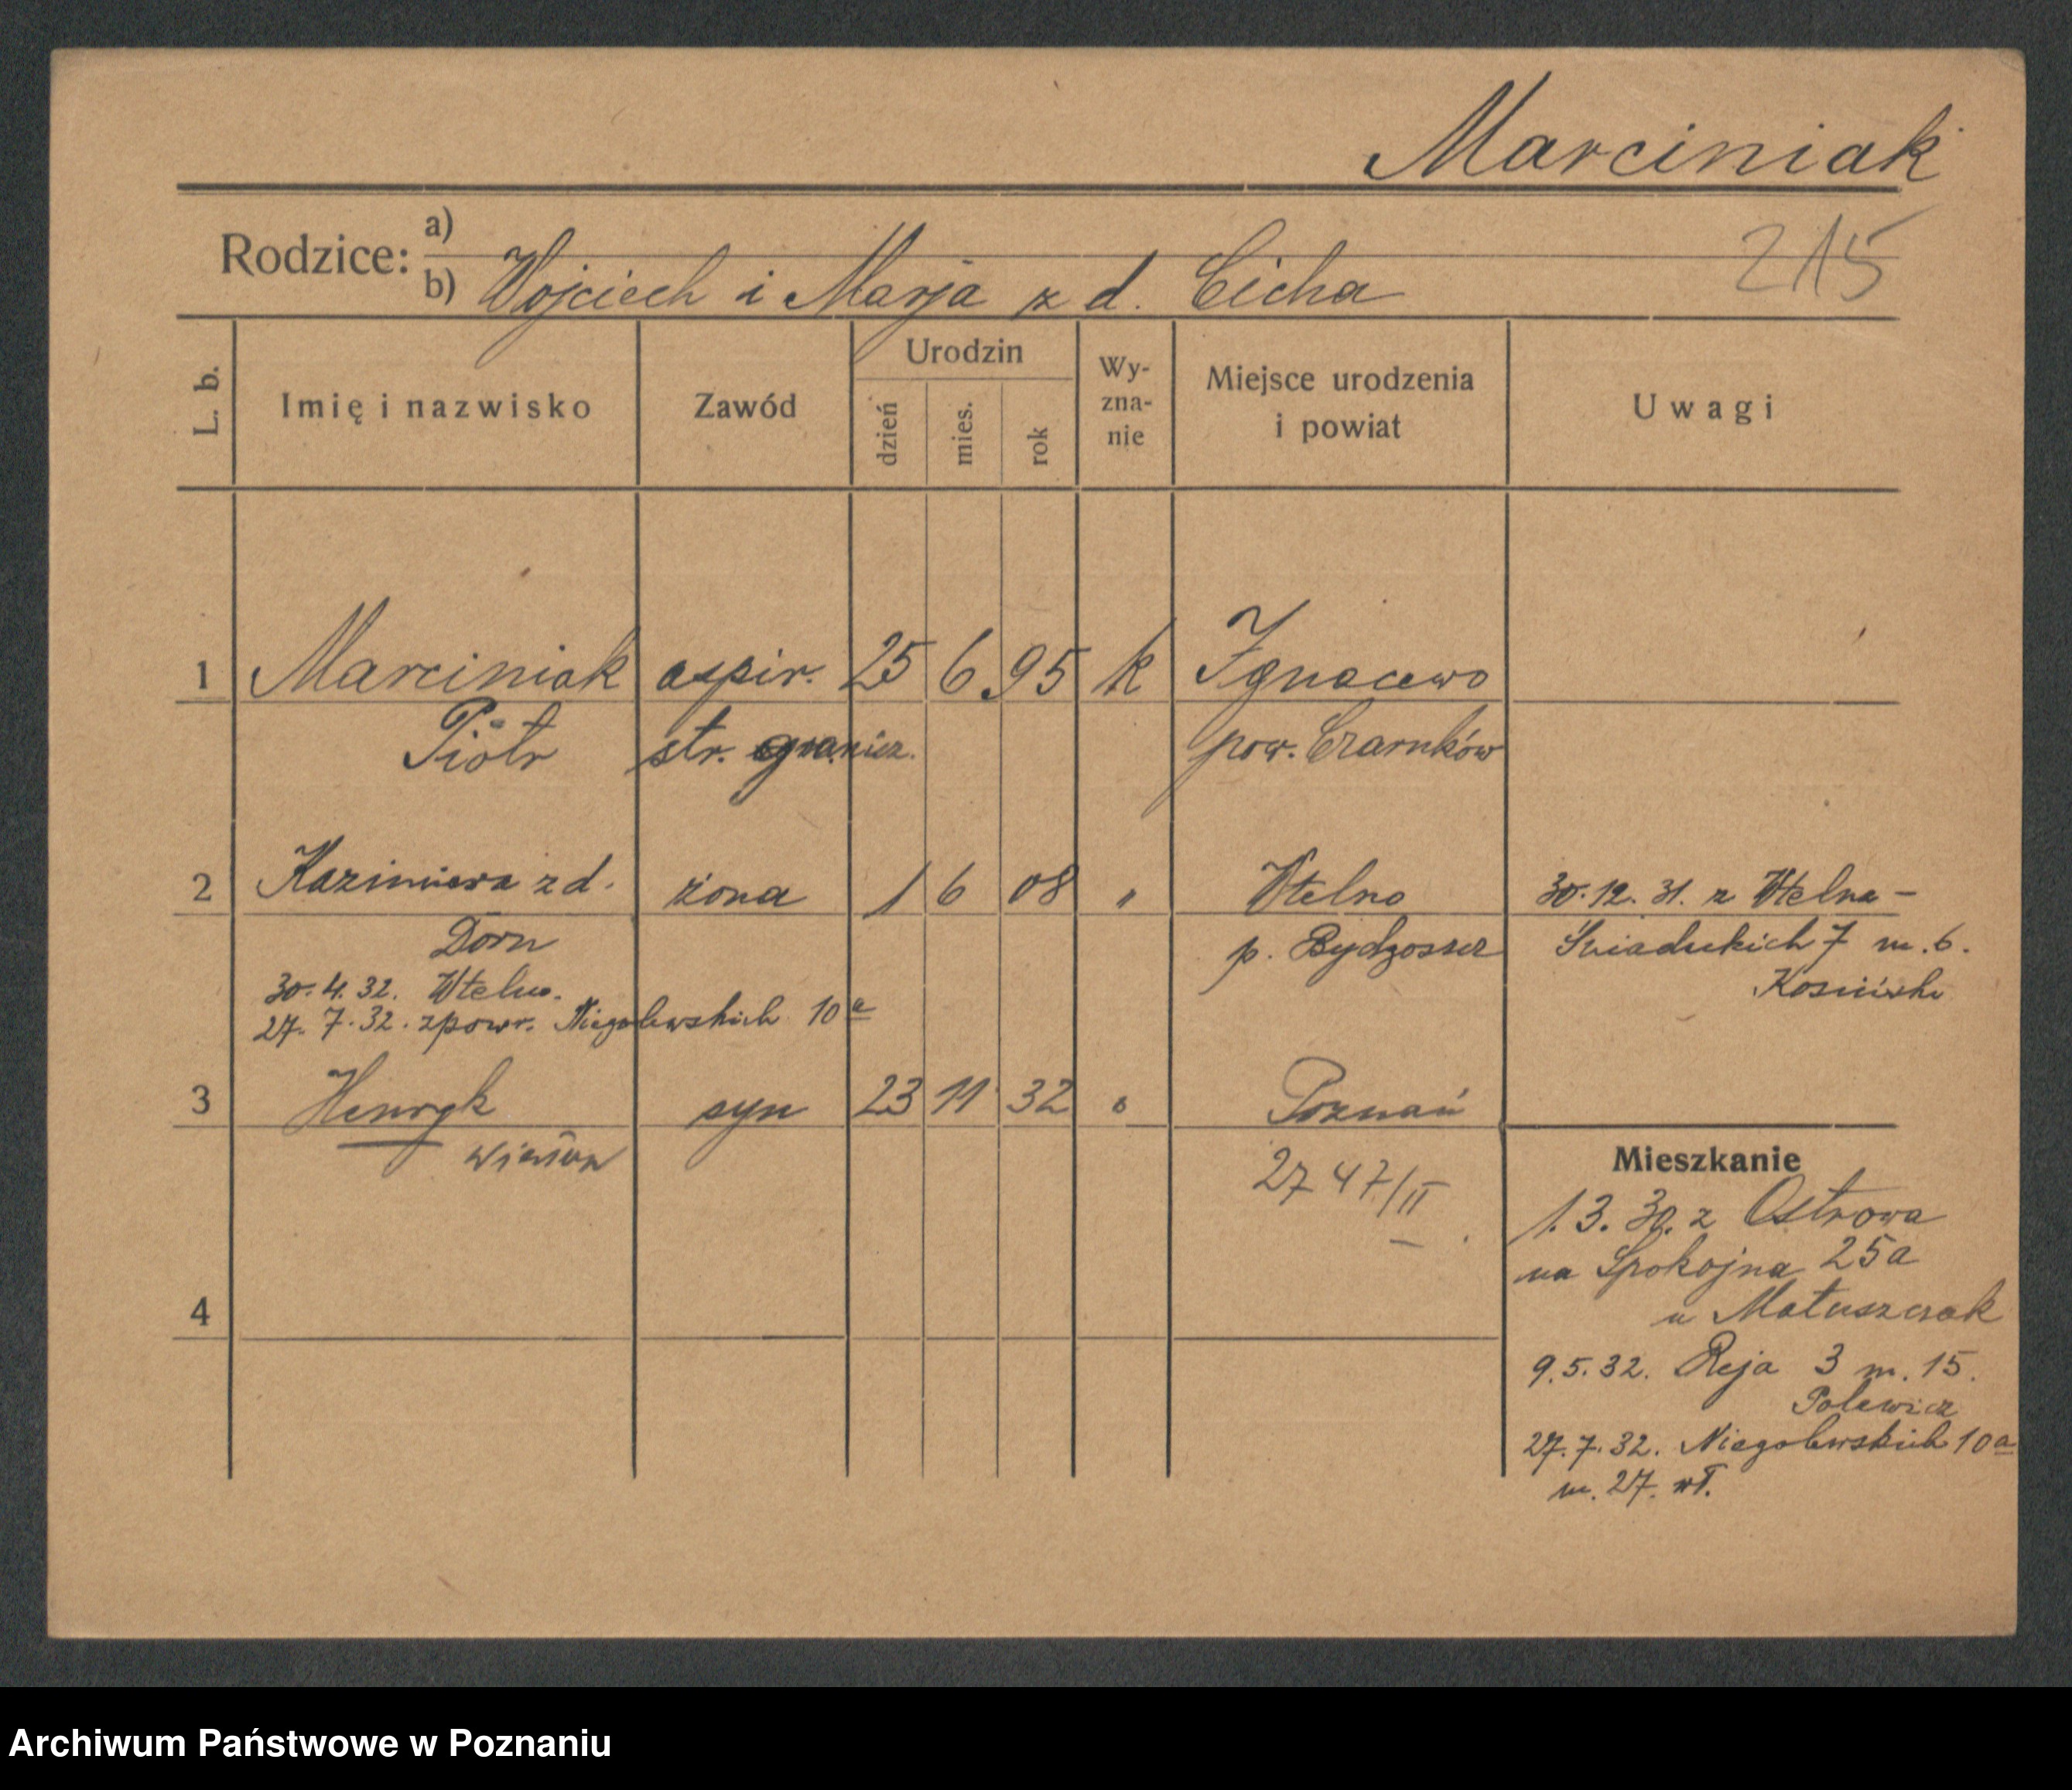 Marciniak
215
Rodzice:
a)
b) Wojciech i Marja z d. Cicha
L. b.
Imię i nazwisko
Zawód
Urodzin
dzień
mies.
rok
Wy-
zna-
nie
Miejsce urodzenia
i powiat
Uwagi
1 Marciniak aspir. 25 6 95 k Ignacewo
Piotr str. granicz. pow. Czarnków
2 Kazimiera z d. żona 1 6 08 " Wtelno 30.12.31. z Wtelna -
Dorn p. Bydgoszcz Śniadeckich 7 m. 6.
Kosiński
30.4.32. Wtelno.
27.7.32. zpowr. Niegolewskich 10a
3 Henryk syn 23 11 32 " Poznań
2747/II
Mieszkanie
1.3.30. z Ostrowa
na Spokojna 25a
u Matuszczak
4
9.5.32. Reja 3 m. 15.
Polewicz
27.7.32. Niegolewskich 10a
m. 27. wł.
Archiwum Państwowe w Poznaniu